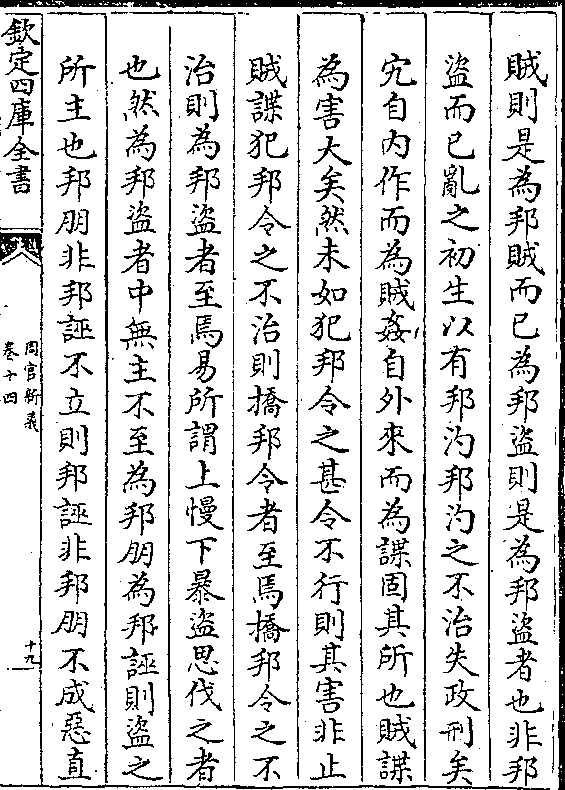 賊則是為邦賊而已為邦盜則是為邦盜者也非邦
盜而已亂之初生以有邦汋邦汋之不治失政刑矣
宄自内作而為賊姦自外來而為諜固其所也賊諜
為害大矣然未如犯邦令之甚令不行則其害非止
賊諜犯邦令之不治則撟邦令者至焉撟邦令之不
治則為邦盜者至焉易所謂上慢下暴盜思伐之者
也然為邦盜者中無主不至為邦朋為邦誣則盜之
所主也邦朋非邦誣不立則邦誣非邦朋不成惡直
欽定四庫全書
周官新義
卷十四
十九